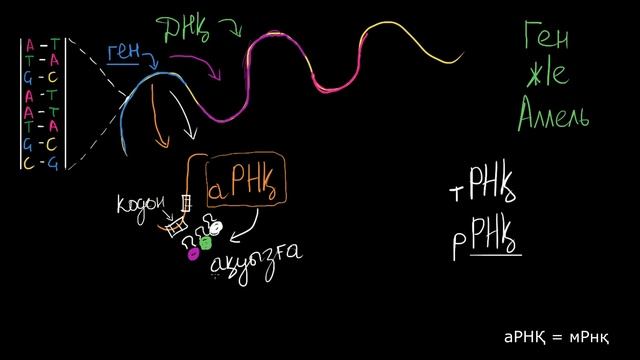 А - Т
Т - А
G - С
А - Т
А - Т
Т - А
G - С
С - G
ген
ДНҚ
Ген
ж/е
Аллель
аРНҚ
кодон
ақуызға
тРНҚ
рРНҚ
аРНҚ = мРнқ